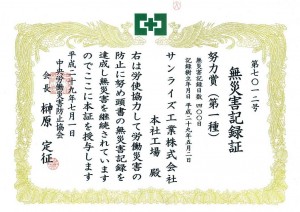 第七〇一二号
無災害記録証
努力賞(第一種)
無災害記録日数 四〇〇日
記録樹立年月日 平成二十九年五月二日
サンライズ工業株式会社
本社工場 殿
右は労使協力して労働災害の
防止に努め頭書の無災害記録を
達成し無災害を継続されています
のでここに本証を授与します
平成二十九年七月一日
中央労働災害防止協会
会長 榊原 定征